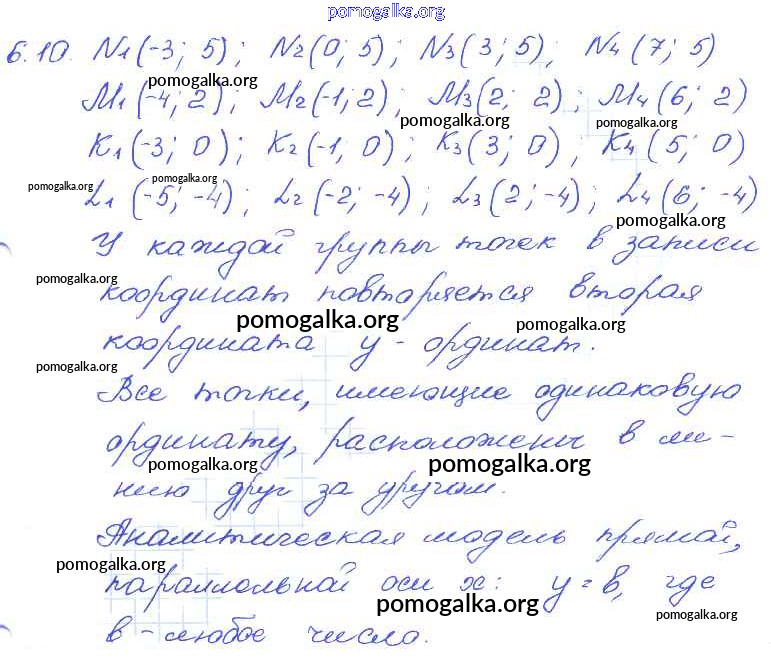 pomogalka.org
6.10. N1(-3; 5); N2(0; 5); N3(3; 5); N4(7; 5)
pomogalka.org
M1(-4; 2); M2(-1; 2); M3(2; 2); M4(6; 2)
pomogalka.org pomogalka.org
K1(-3; 0); K2(-1; 0); K3(3; 0); K4(5; 0)
pomogalka.org pomogalka.org
L1(-5; -4); L2(-2; -4); L3(2; -4); L4(6; -4)
pomogalka.org
У каждой группы точек в записи
pomogalka.org
координат повторяется вторая
pomogalka.org pomogalka.org
координата y - ординат.
pomogalka.org
Все точки, имеющие одинаковую
ординату, расположены в ли-
pomogalka.org pomogalka.org
нию друг за другом.
Аналитическая модель прямой,
pomogalka.org
параллольной оси x: y = в, где
pomogalka.org pomogalka.org
в - любое число.